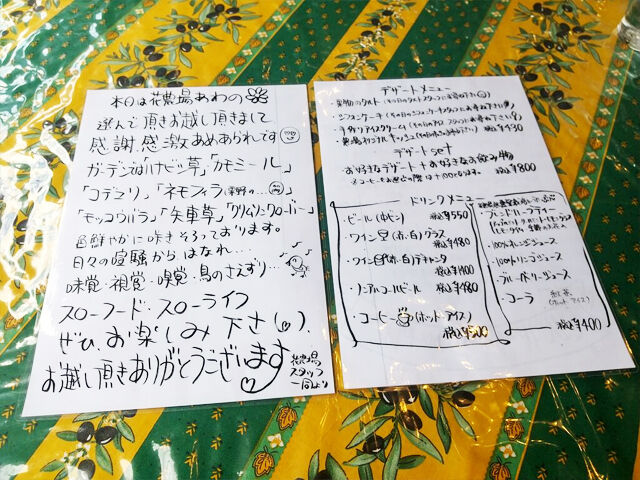 本日は花農場あわの
選んで頂きお越し頂きまして
感謝感激あめあられです
ガーデンでは「ハナビシ草」「カモミール」
「コデマリ」「ネモフィラ
「モッコウバラ」「矢車草」「クリムソンクローバー」
色鮮やかに咲きそろっております。
日々の喧騒からはなれ…
味覚・視覚・嗅覚・鳥のさえずり…
スローフード・スローライフ
ぜひ、お楽しみ下さい
お越し頂きありがとうございます
花農場
スタッフ
一同より
デザートメニュー
税込¥430
デザートset
お好きなデザート+お好きなお飲み物
税込¥800
ドリンクメニュー
・ビール(中ビン)
税込¥550
・ワイン(赤・白)グラス
税込¥480
・ワイン(赤・白)デキャンタ
税込¥1400
・ノンアルコールビール
税込¥480
・コーヒー(ホット・アイス)
税込¥500
・ブレンドハーブティー
・100%オレンジジュース
・100%リンゴジュース
・ブルーベリージュース
・コーラ
紅茶
(ホット アイス)
税込¥400